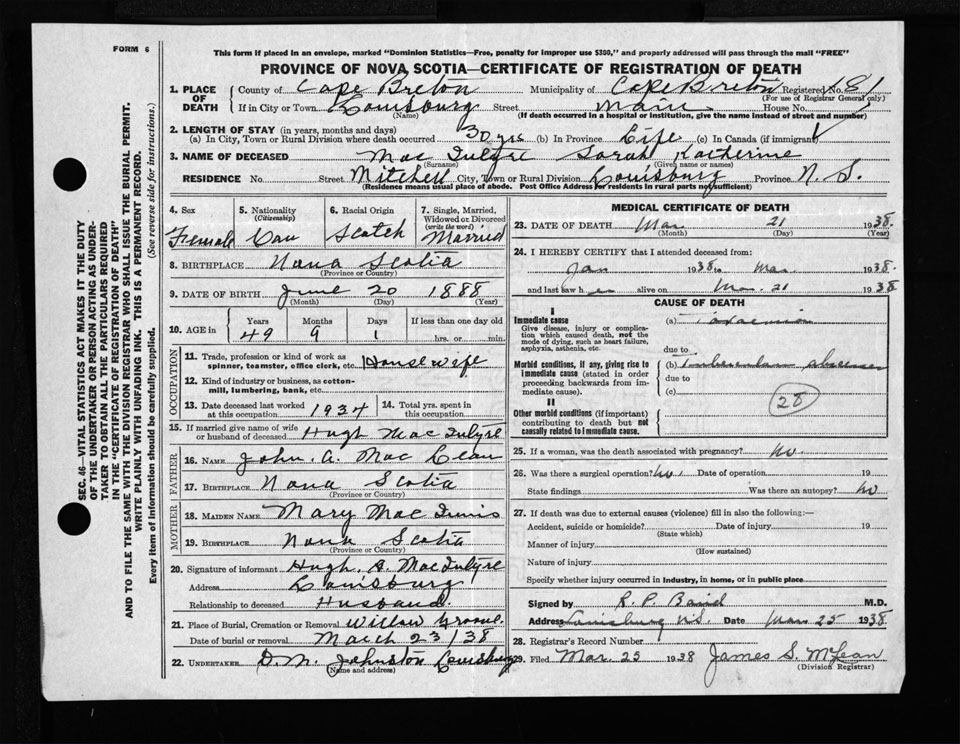 FORM 6
This form if placed in an envelope, marked "Dominion Statistics—Free, penalty for improper use $300," and properly addressed will pass through the mail "FREE"
PROVINCE OF NOVA SCOTIA—CERTIFICATE OF REGISTRATION OF DEATH
1. PLACE OF DEATH
County of Cape Breton Municipality of Cape Breton Registered No. 81
(For use of Registrar General only)
If in City or Town Louisburg Street Main House No.
(Name) (If death occurred in a hospital or institution, give the name instead of street and number)
2. LENGTH OF STAY (in years, months and days)
(a) In City, Town or Rural Division where death occurred 30 yrs (b) In Province Life (c) In Canada (if immigrant)
3. NAME OF DECEASED Mac Intyre Sarah Katherine
(Surname) (Given name or names)
RESIDENCE No. Street Mitchell City, Town or Rural Division Louisburg Province N. S.
(Residence means usual place of abode. Post Office Address for residents in rural parts not sufficient)
4. Sex Female
5. Nationality (Citizenship) Can
6. Racial Origin Scotch
7. Single, Married, Widowed or Divorced (write the word) Married
8. BIRTHPLACE Nova Scotia
(Province or Country)
9. DATE OF BIRTH June 20 1888
(Month) (Day) (Year)
10. AGE in Years Months Days If less than one day old
49 9 1 hrs. or min.
OCCUPATION
11. Trade, profession or kind of work as spinner, teamster, office clerk, etc. Housewife
12. Kind of industry or business, as cotton-mill, lumbering, bank, etc.
13. Date deceased last worked at this occupation 1934
14. Total yrs. spent in this occupation
15. If married give name of wife or husband of deceased Hugh MacIntyre
FATHER
16. NAME John A. Mac Lean
17. BIRTHPLACE Nova Scotia
(Province or Country)
MOTHER
18. MAIDEN NAME Mary Mac Innis
19. BIRTHPLACE Nova Scotia
(Province or Country)
20. Signature of informant Hugh A. MacIntyre
Address Louisburg
Relationship to deceased Husband.
21. Place of Burial, Cremation or Removal Willow Grove.
Date of burial or removal March 23/38
22. UNDERTAKER D. M. Johnston Louisburg
(Name and address)
MEDICAL CERTIFICATE OF DEATH
23. DATE OF DEATH Mar. 21 1938.
(Month) (Day) (Year)
24. I HEREBY CERTIFY that I attended deceased from:
Jan 1938 to Mar. 1938.
and last saw her alive on Mar. 21 1938
CAUSE OF DEATH
I
Immediate cause (a)
Give disease, injury or complication which caused death, not the mode of dying, such as heart failure, asphyxia, asthenia, etc.
due to
Morbid conditions, if any, giving rise to immediate cause (stated in order proceeding backwards from immediate cause). (b)
due to
(c)
28
II
Other morbid conditions (if important) contributing to death but not causally related to immediate cause.
25. If a woman, was the death associated with pregnancy? No.
26. Was there a surgical operation? No. Date of operation 19
State findings Was there an autopsy? No
27. If death was due to external causes (violence) fill in also the following:—
Accident, suicide or homicide? Date of injury 19
(State which)
Manner of injury
(How sustained)
Nature of injury
Specify whether injury occurred in Industry, in home, or in public place
Signed by R. P. Baird M.D.
Address Louisburg N.S. Date Mar. 25 1938.
28. Registrar's Record Number
29. Filed Mar. 25 1938 James S. McLean
(Division Registrar)
SEC. 46—VITAL STATISTICS ACT MAKES IT THE DUTY
OF THE UNDERTAKER OR PERSON ACTING AS UNDER-
TAKER TO OBTAIN ALL THE PARTICULARS REQUIRED
IN THE "CERTIFICATE OF REGISTRATION OF DEATH"
AND TO FILE THE SAME WITH THE DIVISION REGISTRAR WHO SHALL ISSUE THE BURIAL PERMIT.
WRITE PLAINLY WITH UNFADING INK. THIS IS A PERMANENT RECORD.
Every item of information should be carefully supplied. (See reverse side for instructions.)